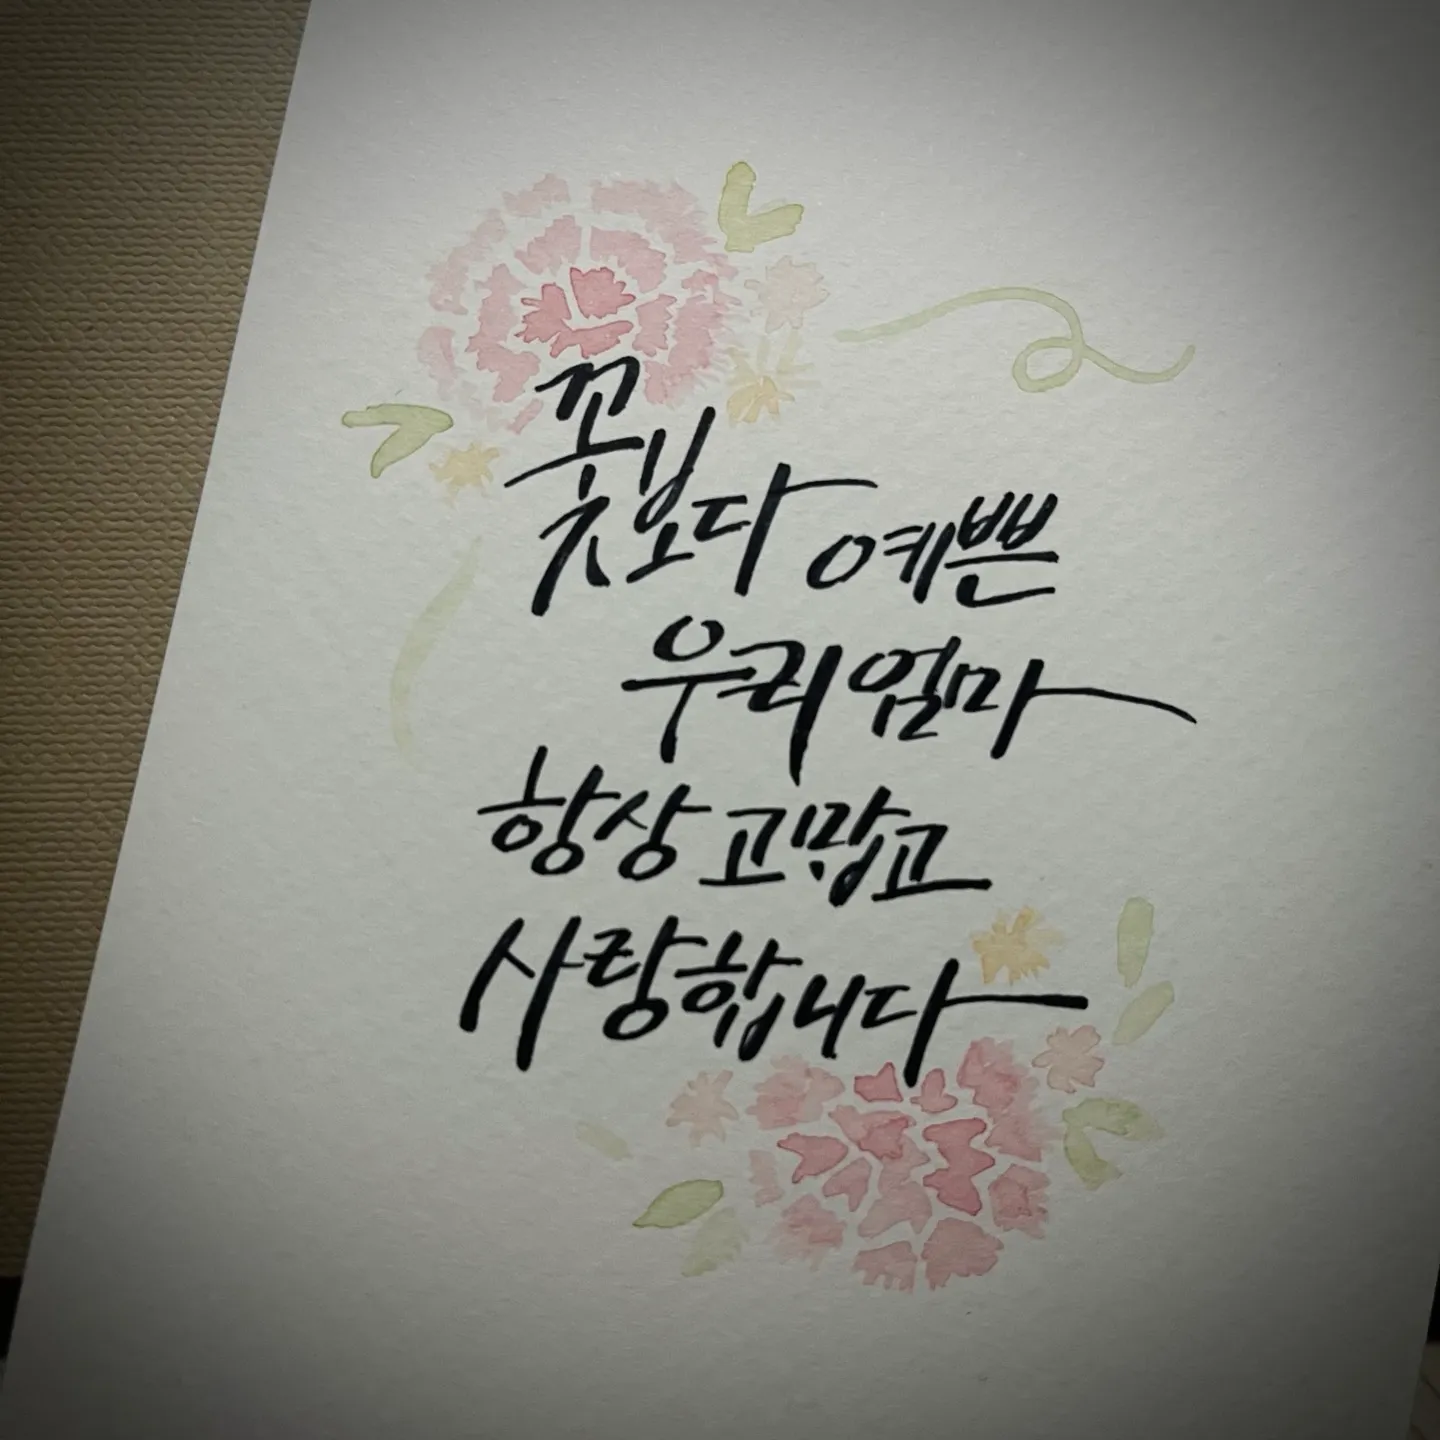 꽃보다 예쁜
우리 엄마
항상 고맙고
사랑합니다